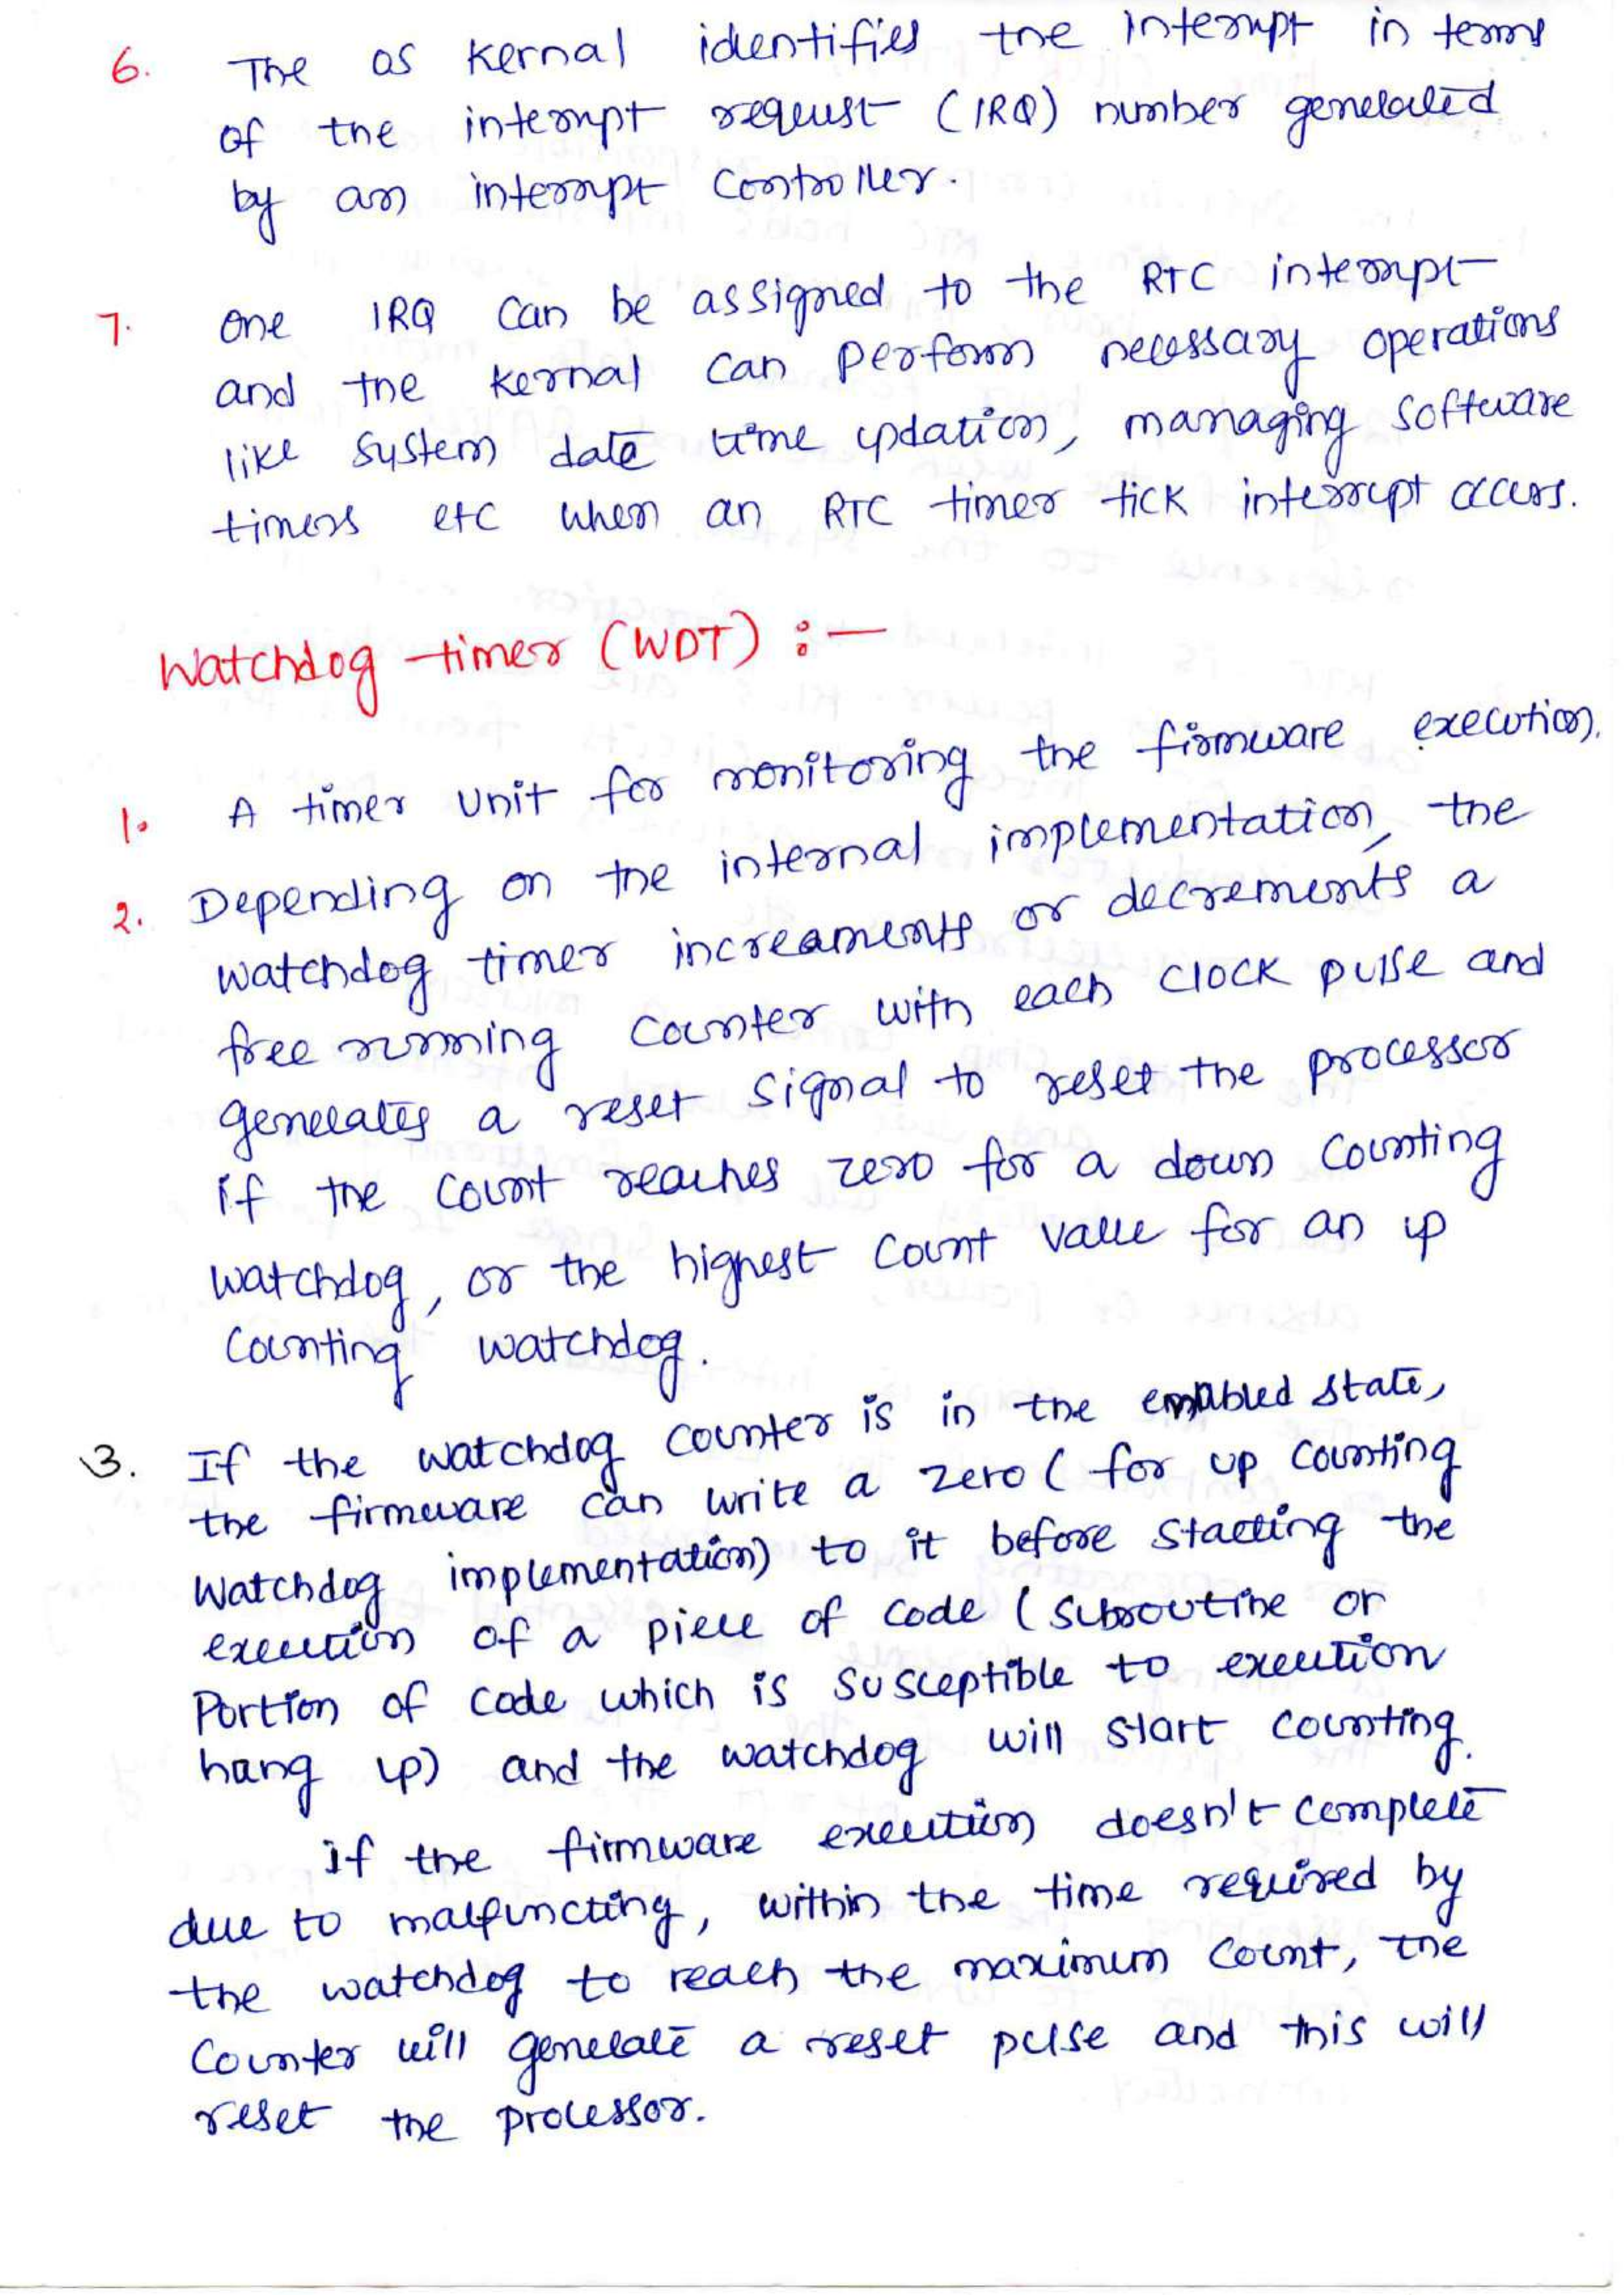 6. The OS Kernal identifies the interrupt in terms
of the interrupt request (IRQ) number generated
by an interrupt controller.
7. One IRQ can be assigned to the RTC interrupt
and the kernal can perform necessary operations
like system date time updation, managing software
timers etc when an RTC timer tick interrupt occurs.
Watchdog timer (WDT) :-
1. A timer unit for monitoring the firmware execution.
2. Depending on the internal implementation, the
watchdog timer increaments or decrements a
free running counter with each clock pulse and
generates a reset signal to reset the processor
if the count reaches zero for a down counting
watchdog, or the highest count value for an up
counting watchdog.
3. If the watchdog counter is in the enabled state,
the firmware can write a zero ( for up counting
watchdog implementation) to it before starting the
execution of a piece of code (subroutine or
portion of code which is susceptible to execution
hang up) and the watchdog will start counting.
if the firmware execution doesn't complete
due to malfuncting, within the time required by
the watchdog to reach the maximum count, the
counter will generate a reset pulse and this will
reset the processor.